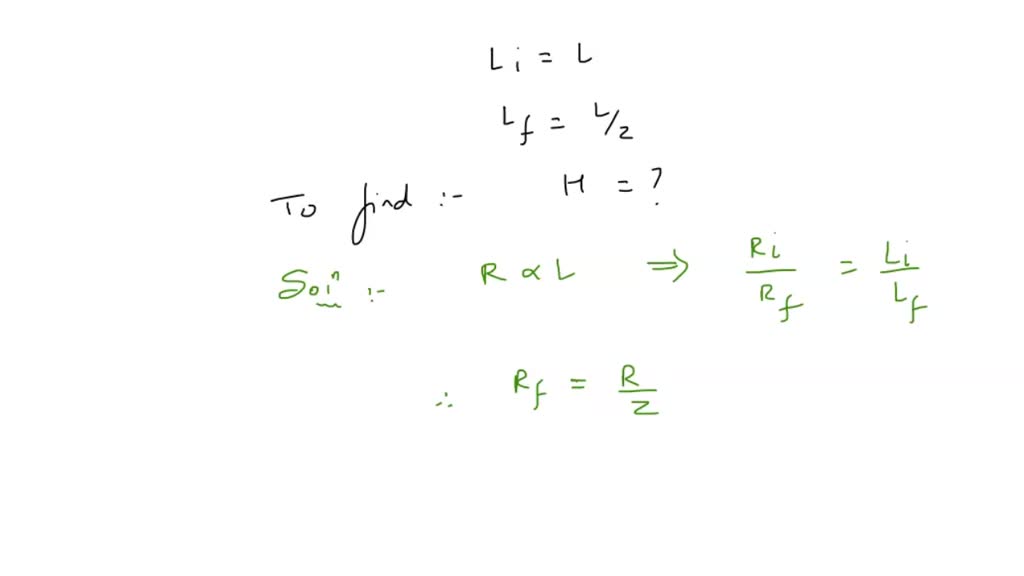 Li = L
Lf = L/2
To find :- H = ?
Soln :- R ∝ L ⇒ Ri/Rf = Li/Lf
∴ Rf = R/2